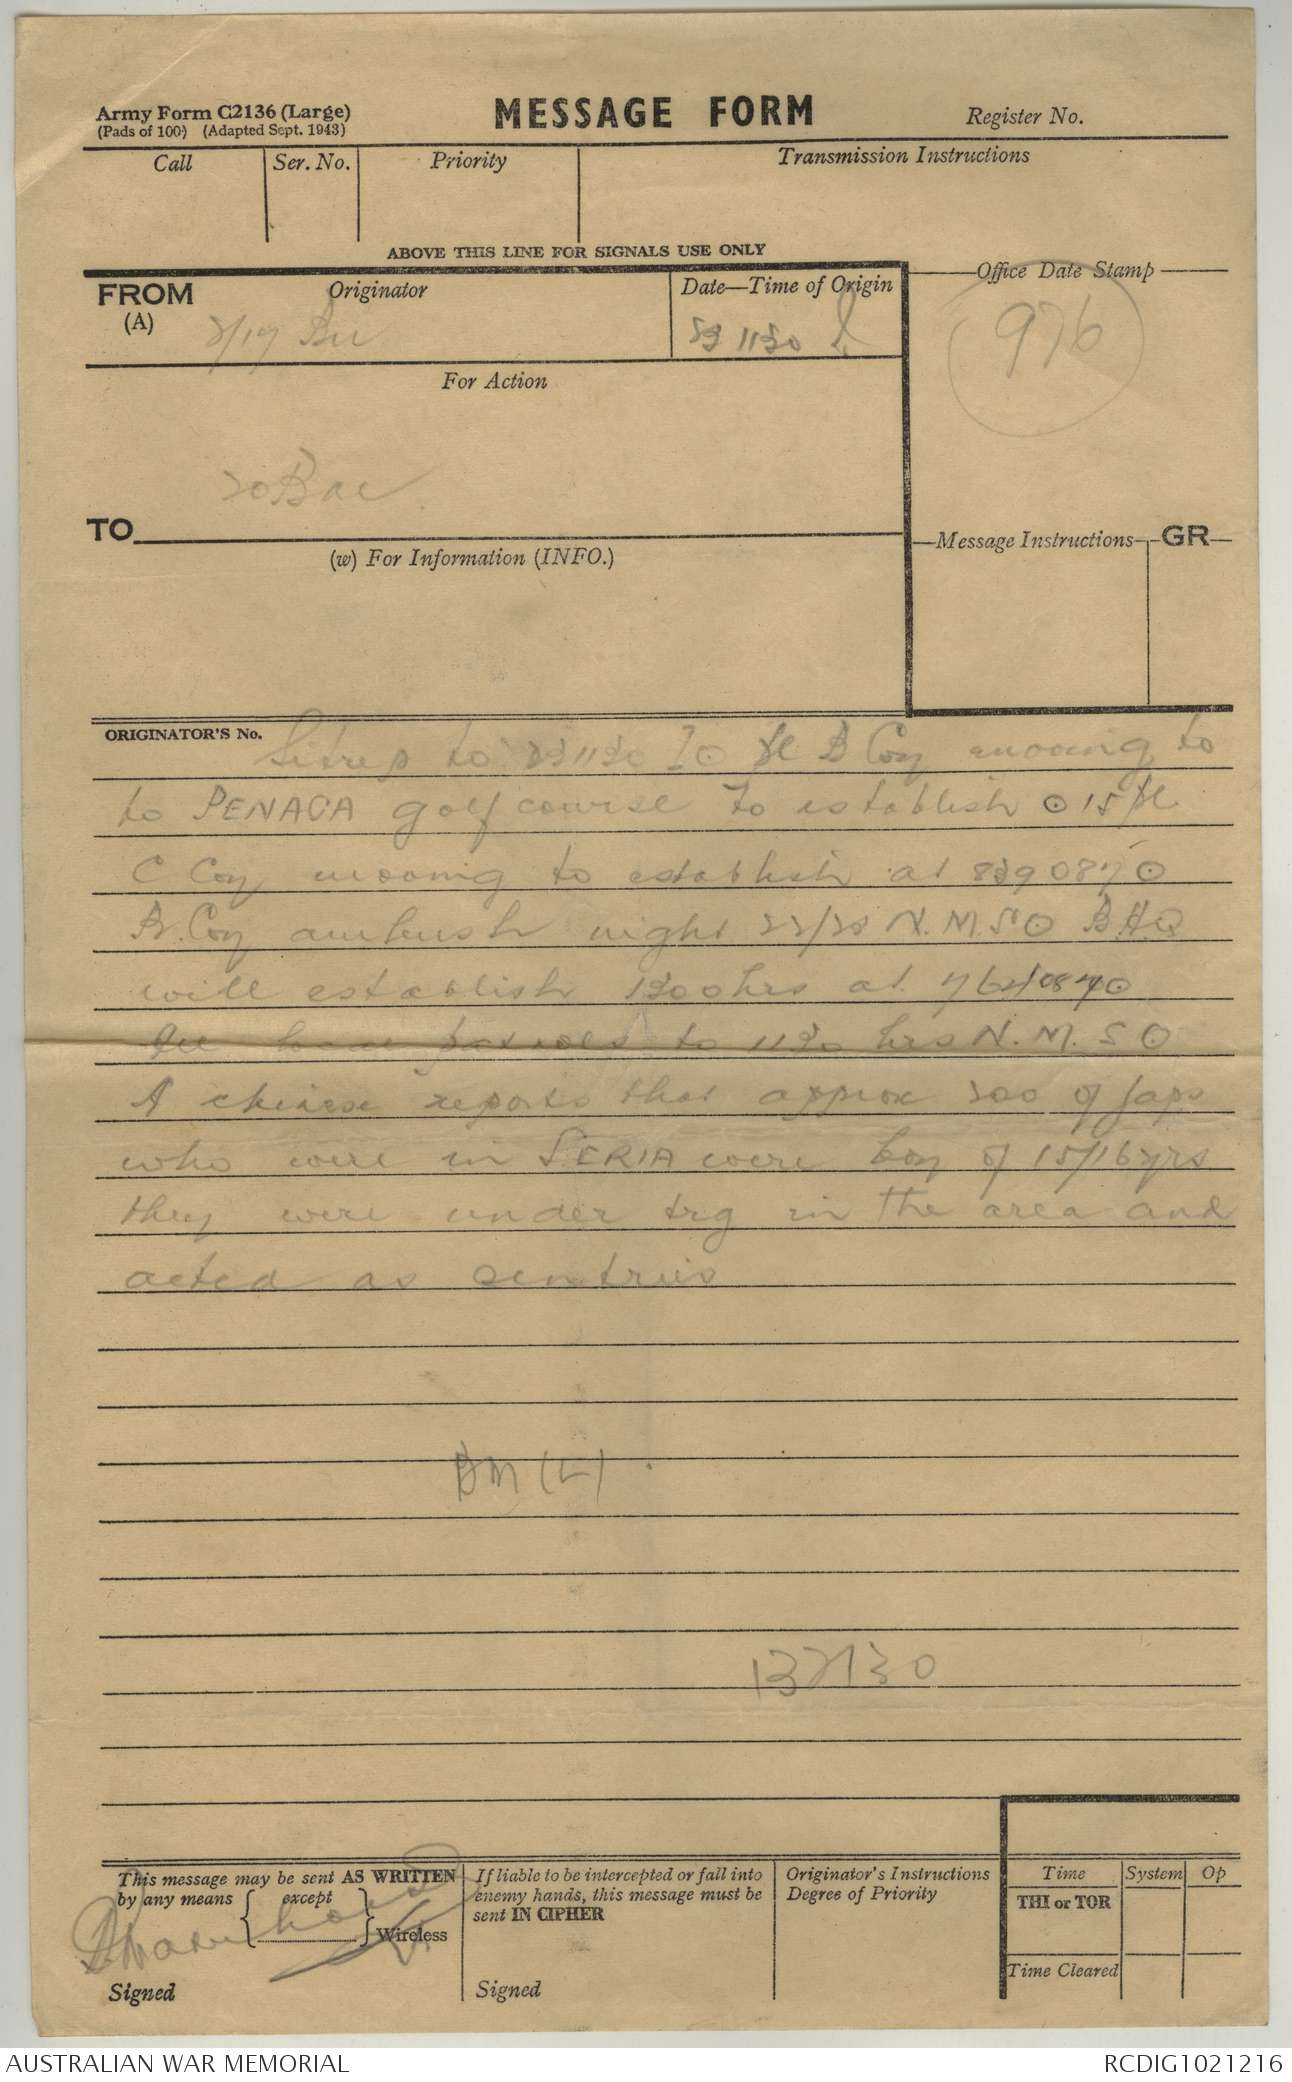 Army Form C2136 (Large)
(Pads of 100) (Adapted Sept. 1943)
MESSAGE FORM
Register No.
Call
Ser. No.
Priority
Transmission Instructions
ABOVE THIS LINE FOR SIGNALS USE ONLY
FROM
(A)
Originator
Date—Time of Origin
Office Date Stamp
976
1130
For Action
20 Bde
TO
(w) For Information (INFO.)
Message Instructions
GR
ORIGINATOR'S No.
Sitrep to 231130 I ⊙ B Coy moving to
to PENAGA golf course to establish ⊙ 15
C Coy moving to establish at 83908
Coy ambush night 22/23 N.M.S ⊙ B.H.Q
will establish 1300hrs at 7640870
patrols to 1130 hrs N.M.S ⊙
A chinese reports that approx 200 of Japs
who were in SERIA were boy of 15/16 yrs
they were under trg in the area and
acted as sentries
BM (L)
This message may be sent AS WRITTEN
by any means { except } Wireless
Signed
If liable to be intercepted or fall into
enemy hands, this message must be
sent IN CIPHER
Signed
Originator's Instructions
Degree of Priority
Time
System
Op
THI or TOR
Time Cleared
AUSTRALIAN WAR MEMORIAL
RCDIG1021216